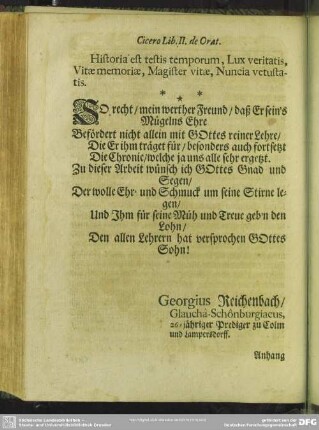 Cicero Lib. II. de Orat.
Historia est testis temporum, Lux veritatis,
Vitæ memoriæ, Magister vitæ, Nuncia vetusta-
tis.
* * *
SO recht/ mein werther Freund/ daß Er sein's
Mügelns Ehre
Befördert nicht allein mit GOttes reiner Lehre/
Die Er ihm träget für/ besonders auch fortsetzt
Die Chronic/ welche ja uns alle sehr ergetzt.
Zu dieser Arbeit wünsch ich GOttes Gnad und
Segen/
Der wolle Ehr- und Schmuck um seine Stirne le-
gen/
Und Ihm für seine Müh und Treue geb'n den
Lohn/
Den allen Lehrern hat versprochen GOttes
Sohn!
Georgius Reichenbach/
Glaucha-Schönburgiacus,
26-jähriger Prediger zu Colm
und Lampersdorff.
Anhang